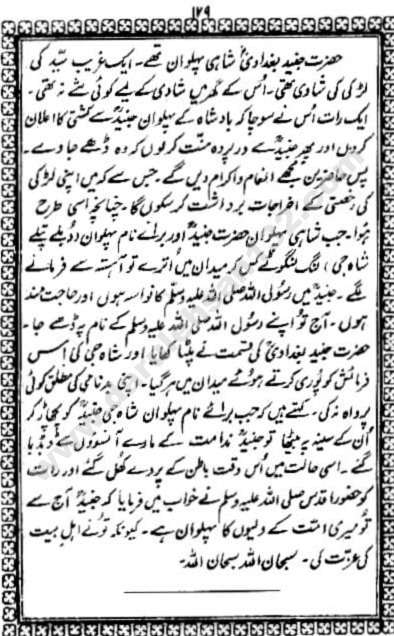 ۱۲۹
حضرت جنید بغدادیؒ شاہی پہلوان تھے۔ ایک غریب سیّد کی
لڑکی کی شادی تھی۔ اُس کے گھر میں شادی کے لیے کوئی شے نہ تھی۔
ایک رات اُس نے سوچا کہ بادشاہ کے پہلوان جنیدؒ سے کشتی کا اعلان
کردوں اور پھر جنیدؒ سے درپردہ منّت کرلوں کہ وہ ڈھے جاوے۔
پس حاضرین مجھے انعام و اکرام دیں گے۔ جس سے کہ میں اپنی لڑکی
کی رخصتی کے اخراجات برداشت کر سکوں گا۔ چنانچہ اسی طرح
ہوا۔ جب شاہی پہلوان حضرت جنیدؒ اور برائے نام پہلوان دُبلے پتلے
شاہ جی لنگ لنگوٹے کس کر میدان میں اُترے تو آہستہ سے فرمانے
لگے۔ جنیدؒ میں رسول اللہ صلی اللہ علیہ وسلّم کا نواسہ ہوں اور حاجت مند
ہوں۔ آج تُو اپنے رسول اللہ صلی اللہ علیہ وسلّم کے نام پر ڈھے جا۔
حضرت جنید بغدادیؒ کی قسمت نے پلٹا کھایا اور شاہ جی کی اس
فرمائش کو پُوری کرتے ہوئے میدان میں گیا۔ اپنی بدنامی کی مطلق کوئی
پرواہ نہ کی۔ کہتے ہیں کہ جب برائے نام پہلوان شاہ جی جنیدؒ کو پچھاڑ کر
اُن کے سینہ پر بیٹھا تو جنیدؒ ندامت کے مارے آنسوؤں سے ڈبڈبا
گئے۔ اسی حالت میں اُس وقت باطن کے پردے کھُل گئے اور رات
کو حضور اقدس صلی اللہ علیہ وسلّم نے خواب میں فرمایا کہ جنیدؒ آج سے
تُو میری امّت کے ولیوں کا پہلوان ہے۔ کیونکہ تُو نے اہلِ بیت
کی عزّت کی۔ سبحان اللہ سبحان اللہ۔